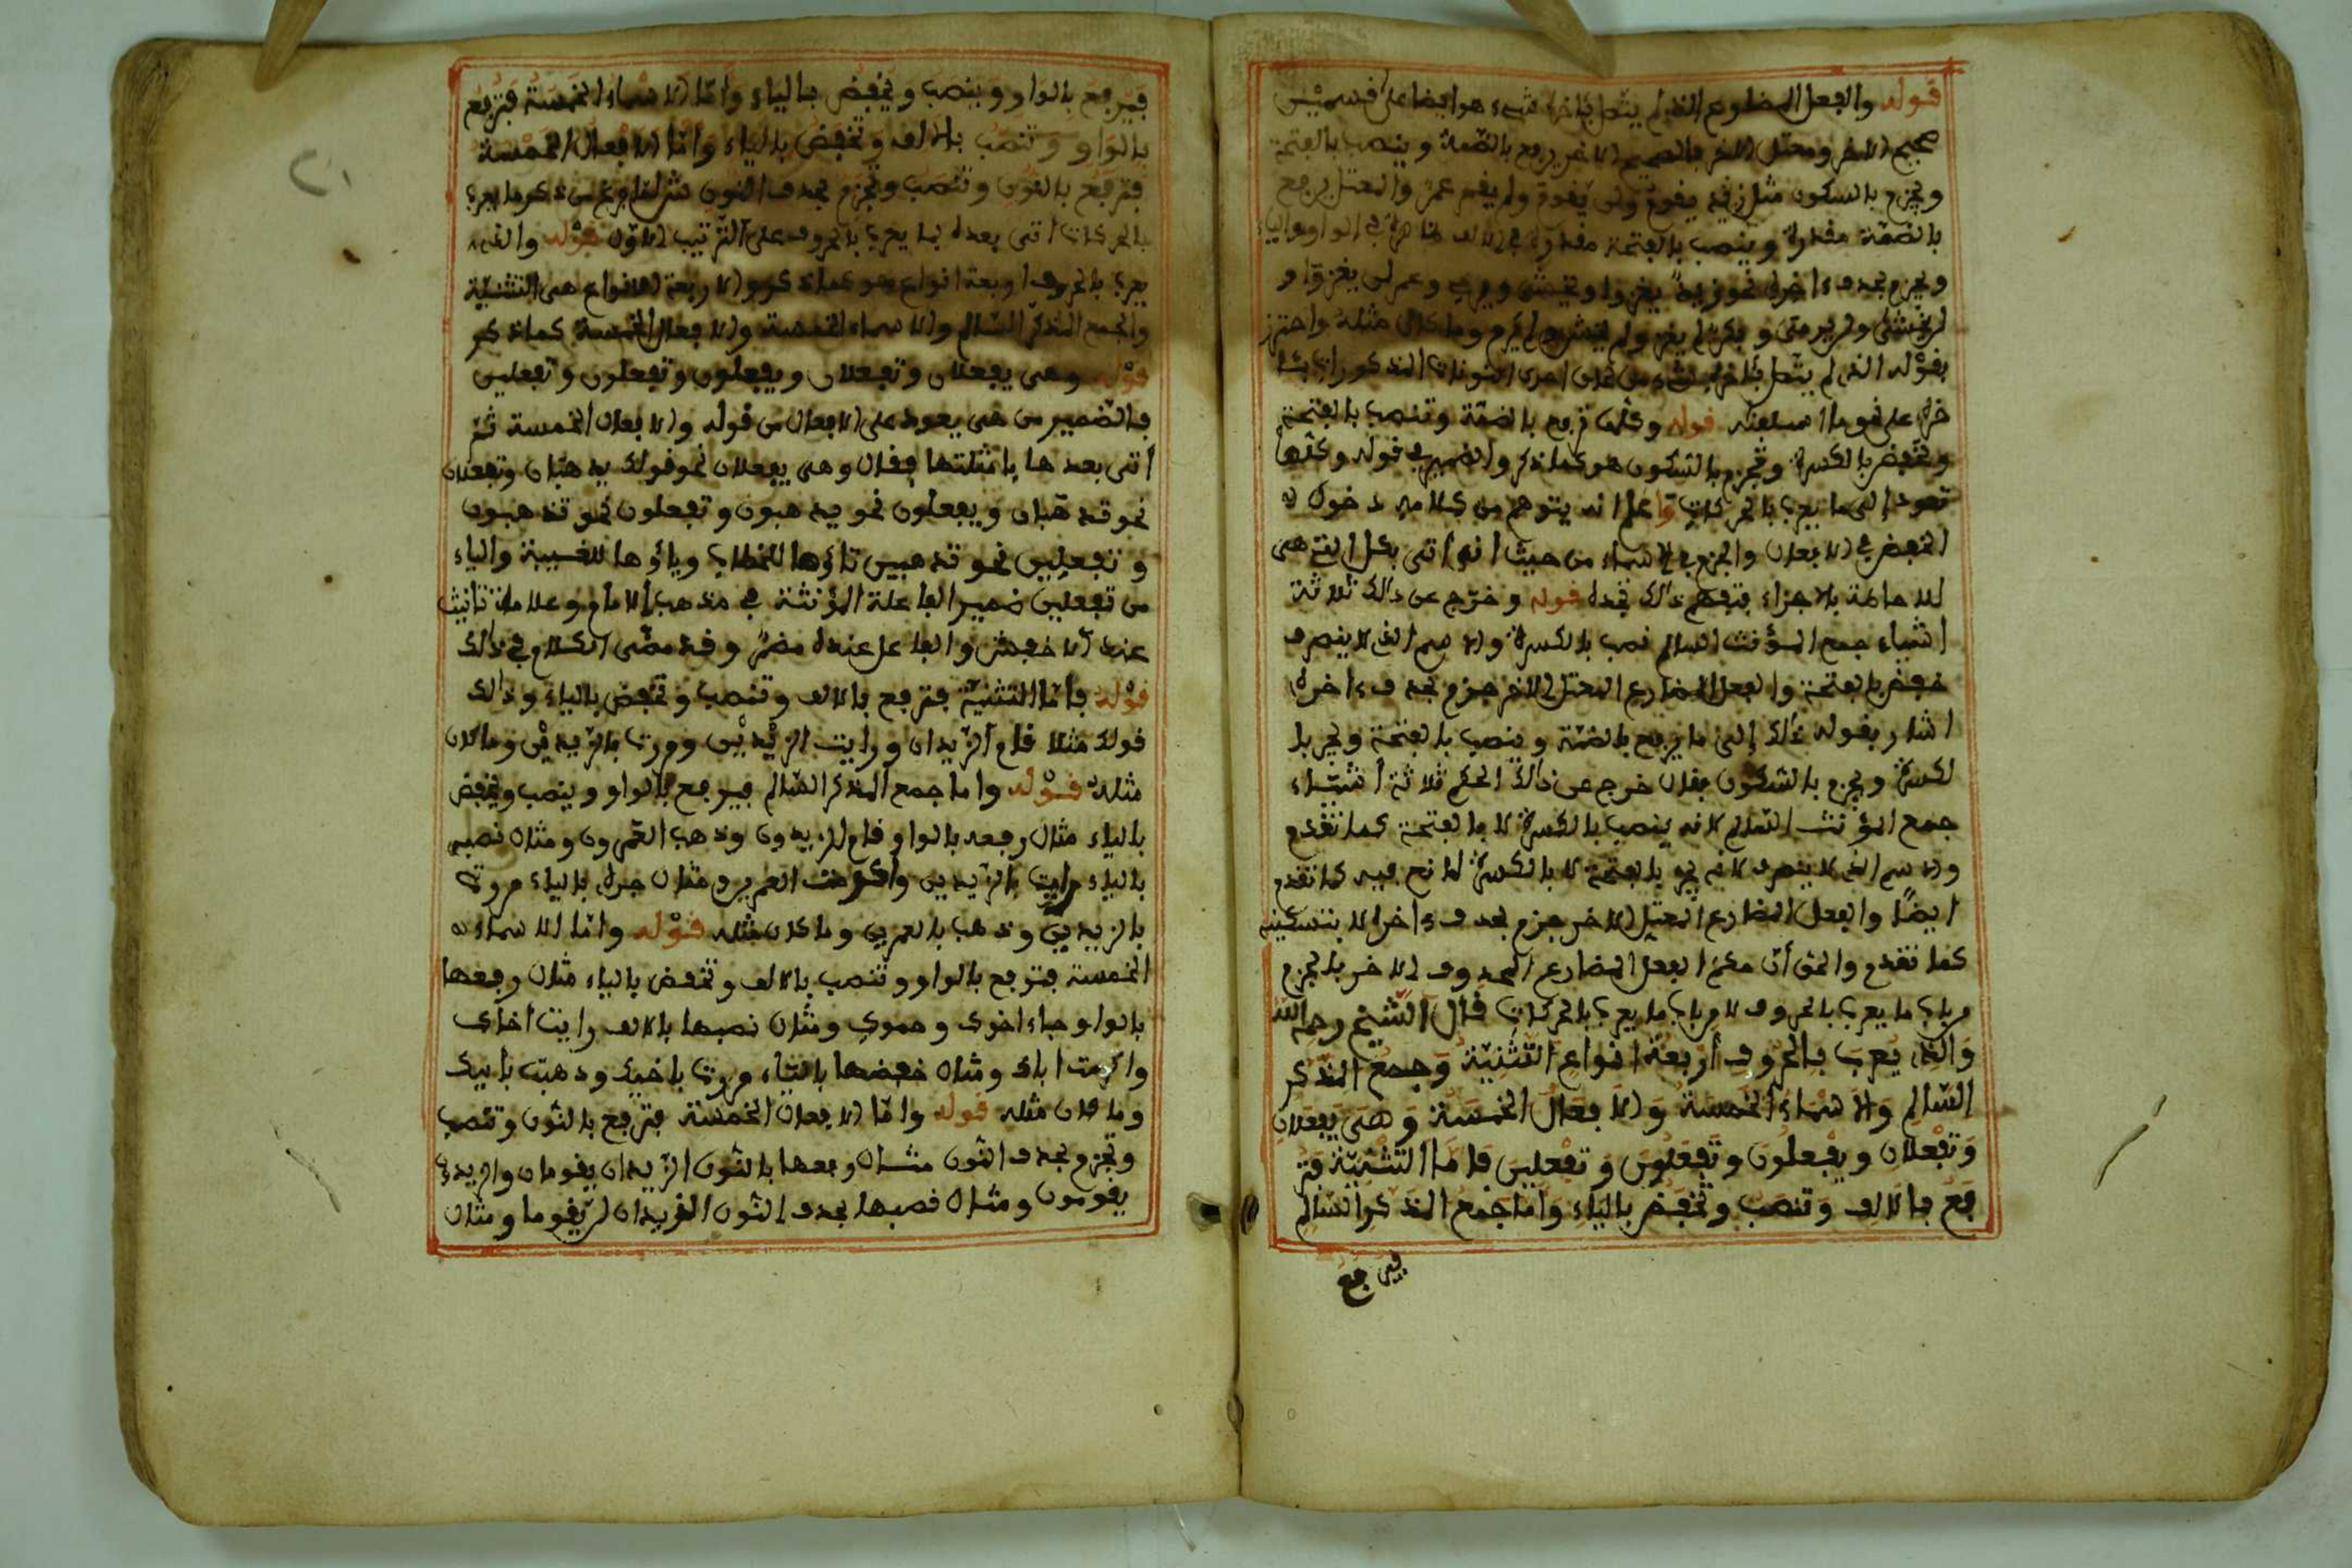 قوله والفعل المضارع الذي لم يتصل بآخره شيء هو ايضا على قسمين
صحيح الاخر ومعتل الاخر فالصحيح الاخر يرفع بالضمة وينصب بالفتحة
ويجزم بالسكون مثل زيد يقوم ولن يقوم ولم يقم عمر والمعتل يرفع
بالضمة مقدرة وينصب بالفتحة مقدرة في الالف ظاهرة في الواو والياء
ويجزم بحذف اخره نحو زيد يغزوا ويخشى ويرمي وعمر لن يغزوا و
لن يخشى ولن يرمي وبكر لم يغز ولم يخش ولم يرم وما كان مثله واحترز
بقوله الذي لم يتصل بآخره شيء من احدى النونات المذكورات
قوله وكلها ترفع بالضمة وتنصب بالفتحة
وتخفض بالكسرة وتجزم بالسكون هو كما ذكر والضمير في قوله وكلها
تعود إلى ما يعرب بالحركات واعلم انه يتوهم من كلامه دخول
الخفض في الافعال والجزم في الاسماء من حيث انه اتى بكل التي هي
للاحاطة بالاجزاء فتفهم ذلك قوله وخرج عن ذالك ثلاثة
اشياء جمع المؤنث السالم نصب بالكسرة والاسم الذي لا ينصرف
خفض بالفتحة والفعل المضارع المعتل الاخر جزم بحذف ءاخره
اشار بقوله ذلك إلى ما يرفع بالضمة وينصب بالفتحة ويجر با
لكسرة ويجزم بالسكون فقال خرج عن ذالك الحكم ثلاثة أشياء
جمع المؤنث السالم لانه ينصب بالكسرة لا بالفتحة كما تقدم
والاسم الذي لا ينصرف لانه يجر بالفتحة لا بالكسرة لمانع فيه كما تقدم
ايضًا والفعل المضارع المعتل الاخر جزم بحذف ءاخره لا بتسكينه
كما تقدم والحق أن حكم الفعل المضارع المحذوف الاخر بالجزم
من باب ما يعرب بالحروف لا من باب ما يعرب بالحركات قال الشيخ رحمه الله
والذي يعرب بالحروف أربعة انواع التثنية وجمع المذكر
السالم والاسماء الخمسة والافعال الخمسة وهي يفعلان
وتفعلان ويفعلون وتفعلون وتفعلين فاما التثنية فتر
فع بالالف وتنصب وتخفض بالياء واما جمع المذكر السالم
فيرفع
فيرفع بالواو وينصب ويخفض بالياء وأما الاسماء الخمسة فترفع
بالواو وتنصب بالالف وتخفض بالياء وأما الافعال الخمسة
فترفع بالنون وتنصب وتجزم بحذف النون
بالحركات اتى بعده بما يعرب بالحروف على الترتيب الاول قوله والذي
يعرب بالحروف اربعة انواع هو كما ذكر والاربعة الانواع هي التثنية
والجمع المذكر السالم والاسماء الخمسة والافعال الخمسة كما ذكر
قوله وهي يفعلان وتفعلان ويفعلون وتفعلون وتفعلين
فالضمير من هي يعود على الافعال من قوله والافعال الخمسة ثم
أتى بعدها بامثلتها فقال وهي يفعلان نحو قولك يذهبان وتفعلان
نحو تذهبان ويفعلون نحو يذهبون وتفعلون نحو تذهبون
وتفعلين نحو تذهبين تاؤها للخطاب وياؤها للغيبة والياء
من تفعلين ضمير الفاعلة المؤنثة في مذهب الامام وعلامة تأنيث
عند الاخفش والفاعل عنده مضمر وقد مضى الكلام في ذالك
قوله فأما التثنية فترفع بالالف وتنصب وتخفض بالياء وذالك
قولك مثلا قام الزيدان ورايت الزيدين ومررت بالزيدين وما كان
مثله قوله واما جمع المذكر السالم فيرفع بالواو وينصب ويخفض
بالياء مثال رفعه بالواو قام الزيدون وذهب العمرون ومثال نصبه
بالياء رايت الزيدين وأكرمت العمرين ومثال جره بالياء مررت
بالزيدين وذهب بالعمرين وما كان مثله قوله وامّا الاسماء
الخمسة فترفع بالواو وتنصب بالالف وتخفض بالياء مثال رفعها
بالواو جاء اخوك وحموك ومثال نصبها بالالف رايت اخاك
واكرمت اباك ومثال خفضها بالياء مررت باخيك وذهبت بأبيك
وما كان مثله قوله وامّا الافعال الخمسة فترفع بالنون وتنصب
وتجزم بحذف النون مثال رفعها بالنون الزيدان يقومان والزيدون
يقومون ومثال نصبها بحذف النون الزيدان لن يقوما ومثال